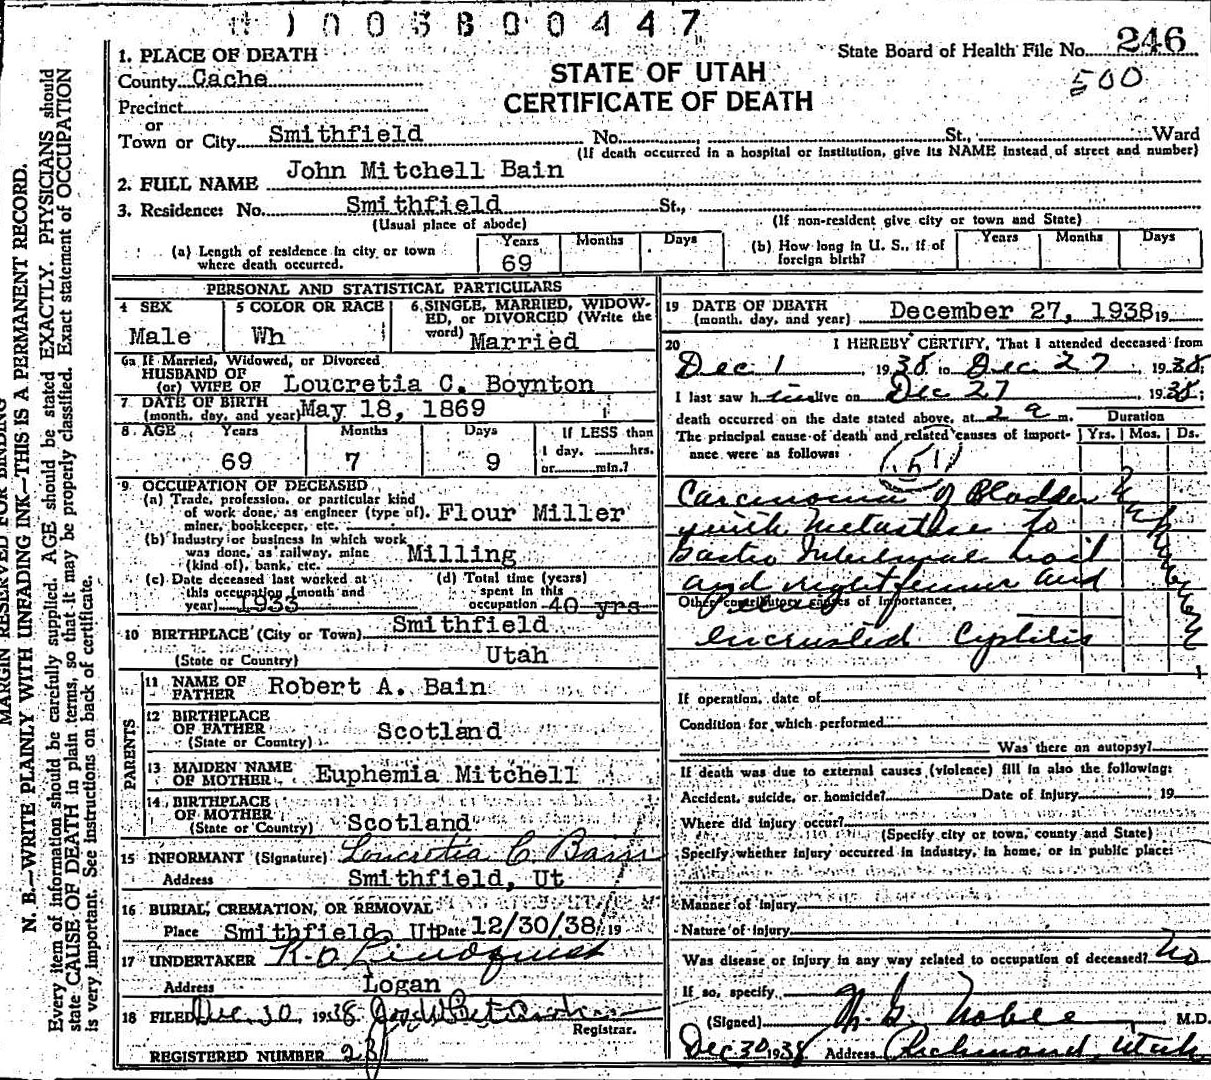 003800447
State Board of Health File No. 246
500
STATE OF UTAH
CERTIFICATE OF DEATH
1. PLACE OF DEATH
County Cache
Precinct
or
Town or City Smithfield No. St., Ward
(If death occurred in a hospital or institution, give its NAME instead of street and number)
2. FULL NAME John Mitchell Bain
3. Residence: No. Smithfield St.,
(Usual place of abode) (If non-resident give city or town and State)
(a) Length of residence in city or town where death occurred. Years 69 Months Days
(b) How long in U. S., if of foreign birth? Years Months Days
PERSONAL AND STATISTICAL PARTICULARS
4 SEX Male
5 COLOR OR RACE Wh
6 SINGLE, MARRIED, WIDOWED, OR DIVORCED (Write the word) Married
6a If Married, Widowed, or Divorced
HUSBAND OF
(or) WIFE OF Loucretia C. Boynton
7 DATE OF BIRTH
(month, day, and year) May 18, 1869
8 AGE Years Months Days If LESS than
1 day, hrs.
69 7 9 or min.?
9 OCCUPATION OF DECEASED
(a) Trade, profession, or particular kind
of work done, as engineer (type of). Flour Miller
miner, bookkeeper, etc.
(b) Industry or business in which work
was done, as railway, mine Milling
(kind of), bank, etc.
(c) Date deceased last worked at
this occupation (month and
year) 1933
(d) Total time (years)
spent in this
occupation 40 yrs
10 BIRTHPLACE (City or Town) Smithfield
(State or Country) Utah
PARENTS
11 NAME OF
FATHER Robert A. Bain
12 BIRTHPLACE
OF FATHER Scotland
(State or Country)
13 MAIDEN NAME
OF MOTHER Euphemia Mitchell
14 BIRTHPLACE
OF MOTHER
(State or Country) Scotland
15 INFORMANT (Signature) Loucretia C. Bain
Address Smithfield, Ut
16 BURIAL, CREMATION, OR REMOVAL
Place Smithfield, Ut Date 12/30/38 19
17 UNDERTAKER
Address Logan
18 FILED Dec. 30, 1938
Registrar.
REGISTERED NUMBER
19 DATE OF DEATH
(month, day, and year) December 27, 1938 19
20 I HEREBY CERTIFY, That I attended deceased from
Dec 1, 1938 to Dec. 27, 1938;
I last saw h im live on Dec 27, 1938;
death occurred on the date stated above, at 2 a m.
Duration
The principal cause of death and related causes of importance were as follows: Yrs. Mos. Ds.
(51)
Carcinoma of Bladder
with metastase to
Gastro Intestinal
and right femur and
Other contributory causes of importance:
encrusted Cystitis
If operation, date of
Condition for which performed
Was there an autopsy?
If death was due to external causes (violence) fill in also the following:
Accident, suicide, or homicide? Date of injury 19
Where did injury occur?
(Specify city or town, county and State)
Specify whether injury occurred in industry, in home, or in public place:
Manner of injury
Nature of injury
Was disease or injury in any way related to occupation of deceased? No
If so, specify
(Signed) M.D.
Dec 30 1938 Address Richmond, Utah
MARGIN RESERVED FOR BINDING
N. B.—WRITE PLAINLY WITH UNFADING INK—THIS IS A PERMANENT RECORD.
Every item of information should be carefully supplied. AGE should be stated EXACTLY. PHYSICIANS should
state CAUSE OF DEATH in plain terms, so that it may be properly classified. Exact statement of OCCUPATION
is very important. See instructions on back of certificate.